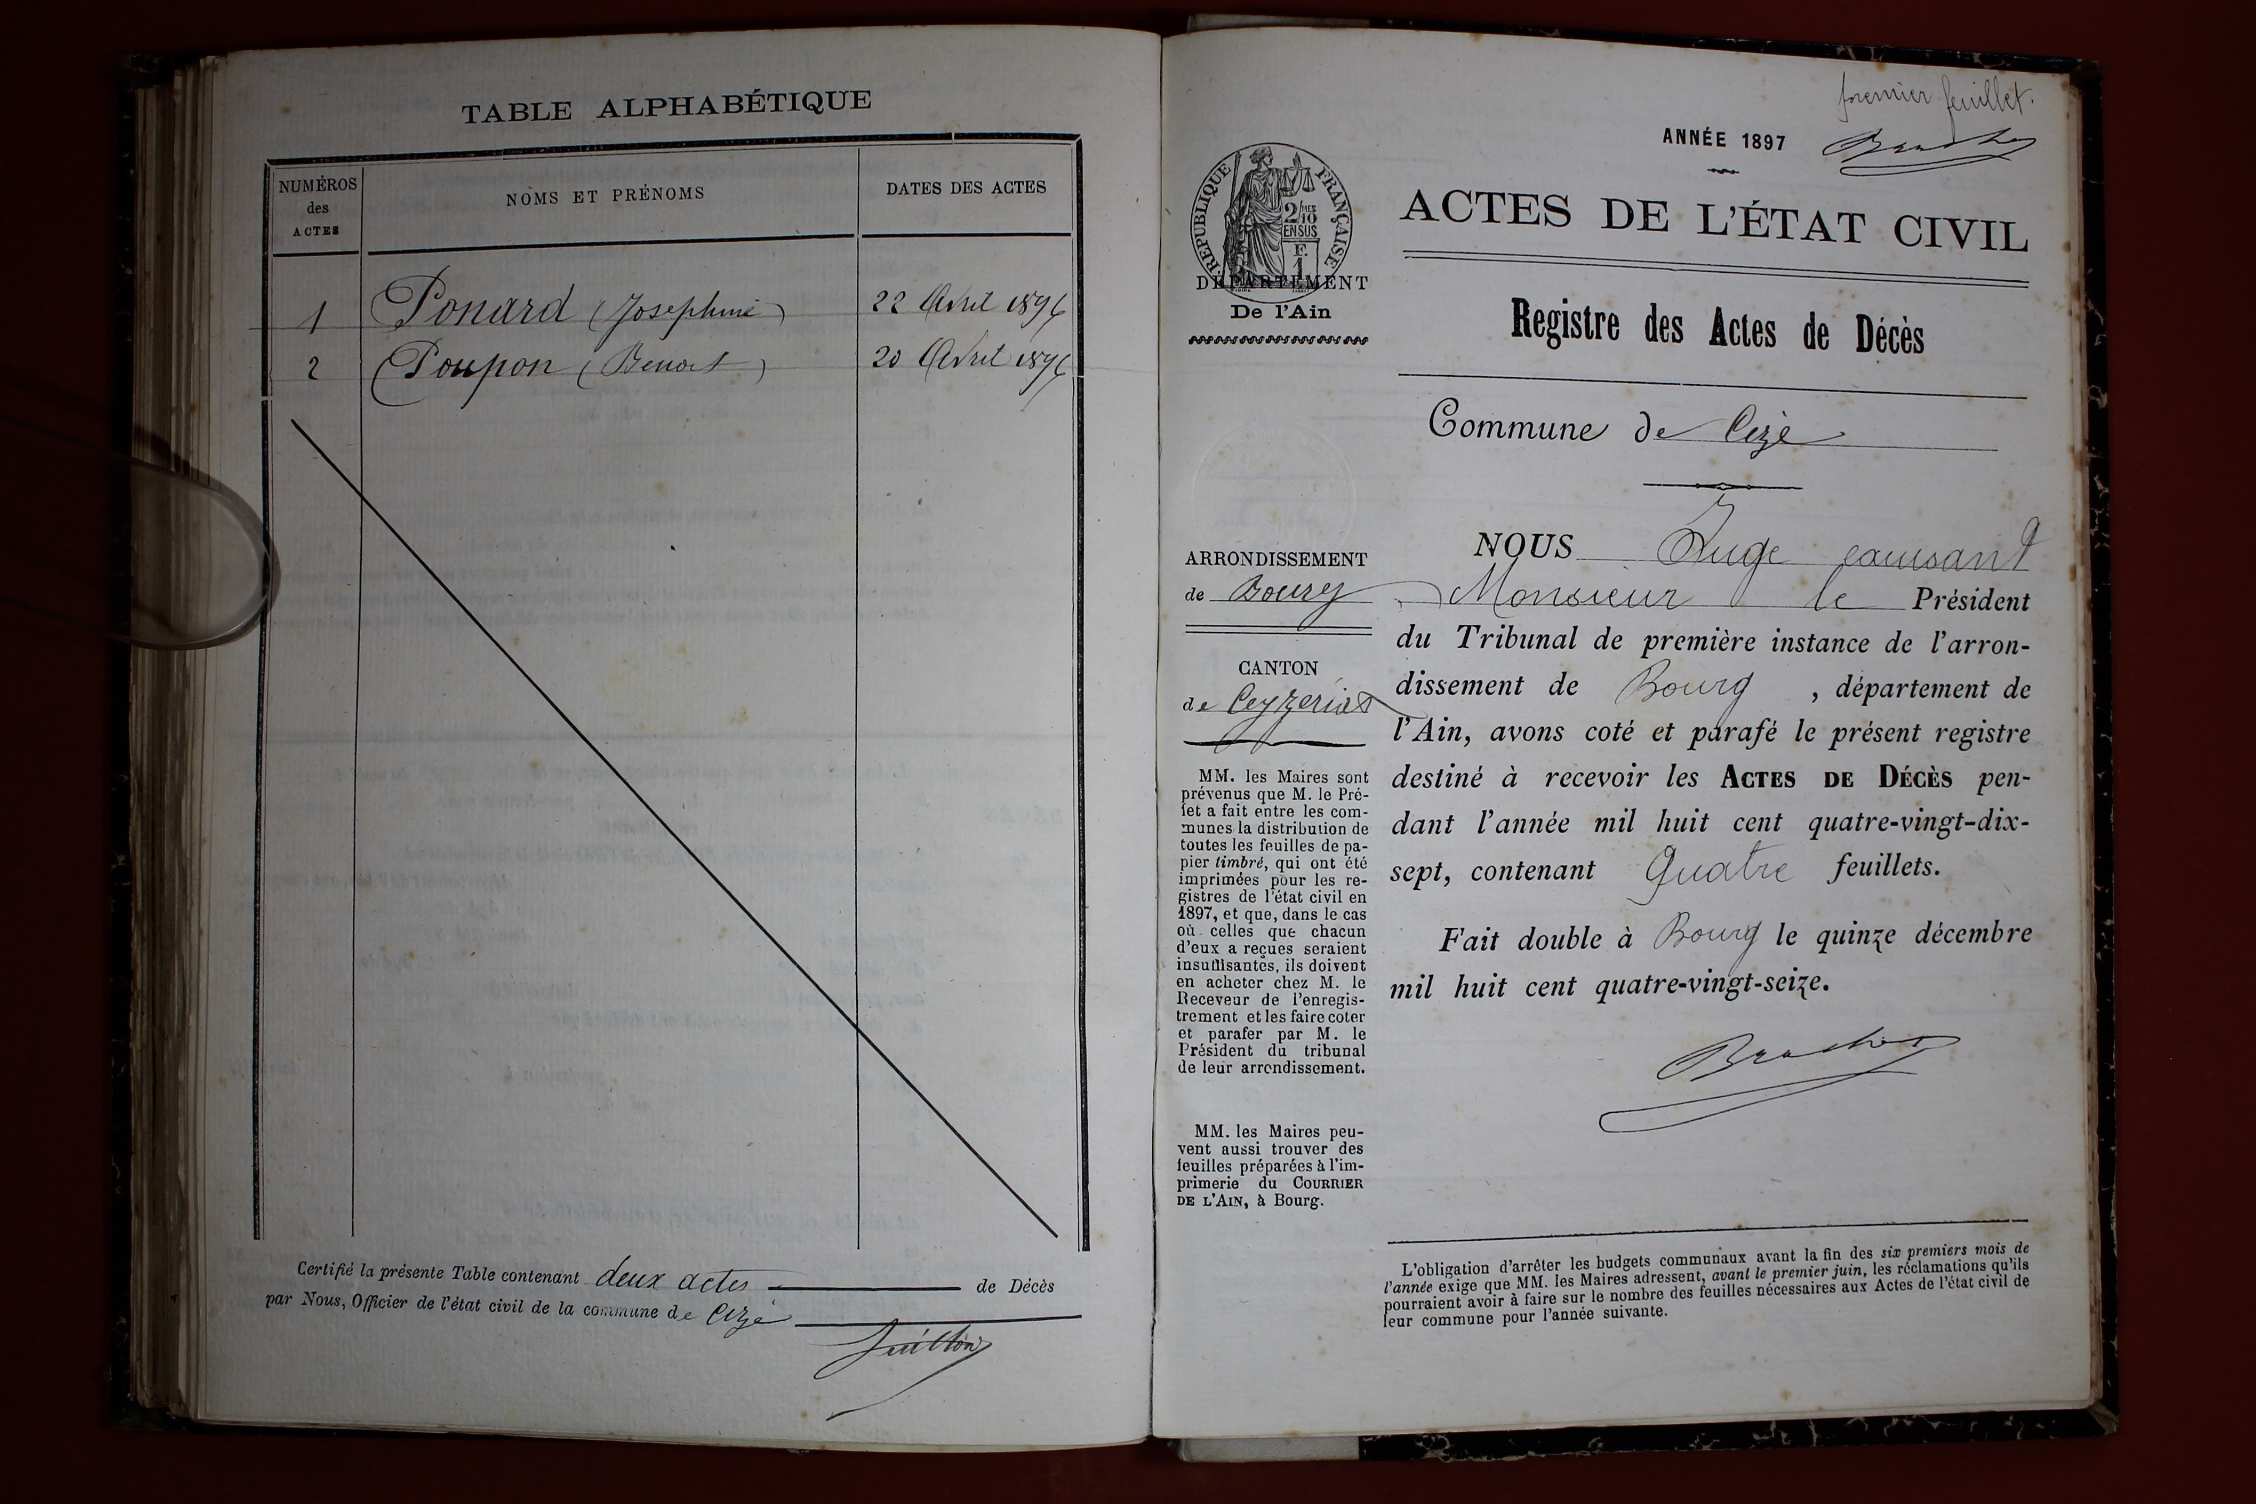 TABLE ALPHABÉTIQUE
NUMÉROS
des
ACTES
NOMS ET PRÉNOMS
DATES DES ACTES
1 Ponard (Josephine) 22 Avril 1896
2 Poupon (Benoit) 20 Avril 1896
Certifié la présente Table contenant deux actes de Décès
par Nous, Officier de l'état civil de la commune de Cize
premier feuillet.
ANNÉE 1897
RÉPUBLIQUE FRANÇAISE
2/10 MES
EN SUS
F.
1
DÉPARTEMENT
De l'Ain
ACTES DE L'ÉTAT CIVIL
Registre des Actes de Décès
Commune de Cize
ARRONDISSEMENT
de Bourg
CANTON
de Ceyzeriat
MM. les Maires sont
prévenus que M. le Pré-
fet a fait entre les com-
munes la distribution de
toutes les feuilles de pa-
pier timbré, qui ont été
imprimées pour les re-
gistres de l'état civil en
1897, et que, dans le cas
où celles que chacun
d'eux a reçues seraient
insuffisantes, ils doivent
en acheter chez M. le
Receveur de l'enregis-
trement et les faire coter
et parafer par M. le
Président du tribunal
de leur arrondissement.
MM. les Maires peu-
vent aussi trouver des
feuilles préparées à l'im-
primerie du COURRIER
DE L'AIN, à Bourg.
NOUS Juge faisant
Monsieur le Président
du Tribunal de première instance de l'arron-
dissement de Bourg, département de
l'Ain, avons coté et parafé le présent registre
destiné à recevoir les ACTES DE DÉCÈS pen-
dant l'année mil huit cent quatre-vingt-dix-
sept, contenant Quatre feuillets.
Fait double à Bourg le quinze décembre
mil huit cent quatre-vingt-seize.
L'obligation d'arrêter les budgets communaux avant la fin des six premiers mois de
l'année exige que MM. les Maires adressent, avant le premier juin, les réclamations qu'ils
pourraient avoir à faire sur le nombre des feuilles nécessaires aux Actes de l'état civil de
leur commune pour l'année suivante.